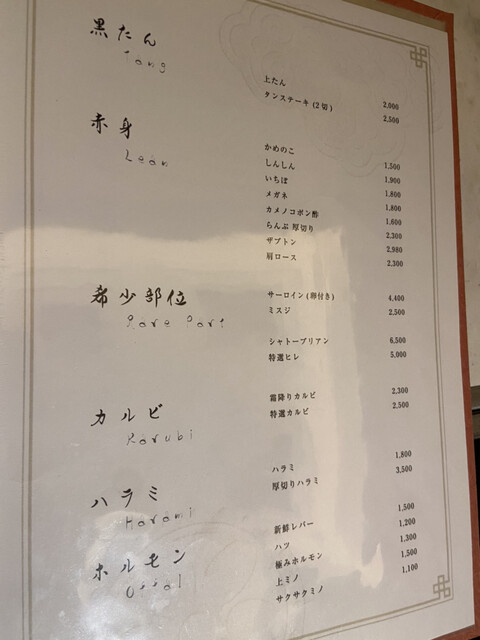 黒たん
Tang
上たん 2,000
タンステーキ (2切) 2,500
赤身
Lean
かめのこ 1,500
しんしん 1,900
いちぼ 1,800
メガネ 1,800
カメノコポン酢 1,600
らんぷ 厚切り 2,300
ザブトン 2,980
肩ロース 2,300
希少部位
Rare Part
サーロイン (卵付き) 4,400
ミスジ 2,500
シャトーブリアン 6,500
特選ヒレ 5,000
カルビ
Karubi
霜降りカルビ 2,300
特選カルビ 2,500
ハラミ
Harami
ハラミ 1,800
厚切りハラミ 3,500
ホルモン
Offal
新鮮レバー 1,500
ハツ 1,200
極みホルモン 1,300
上ミノ 1,500
サクサクミノ 1,100